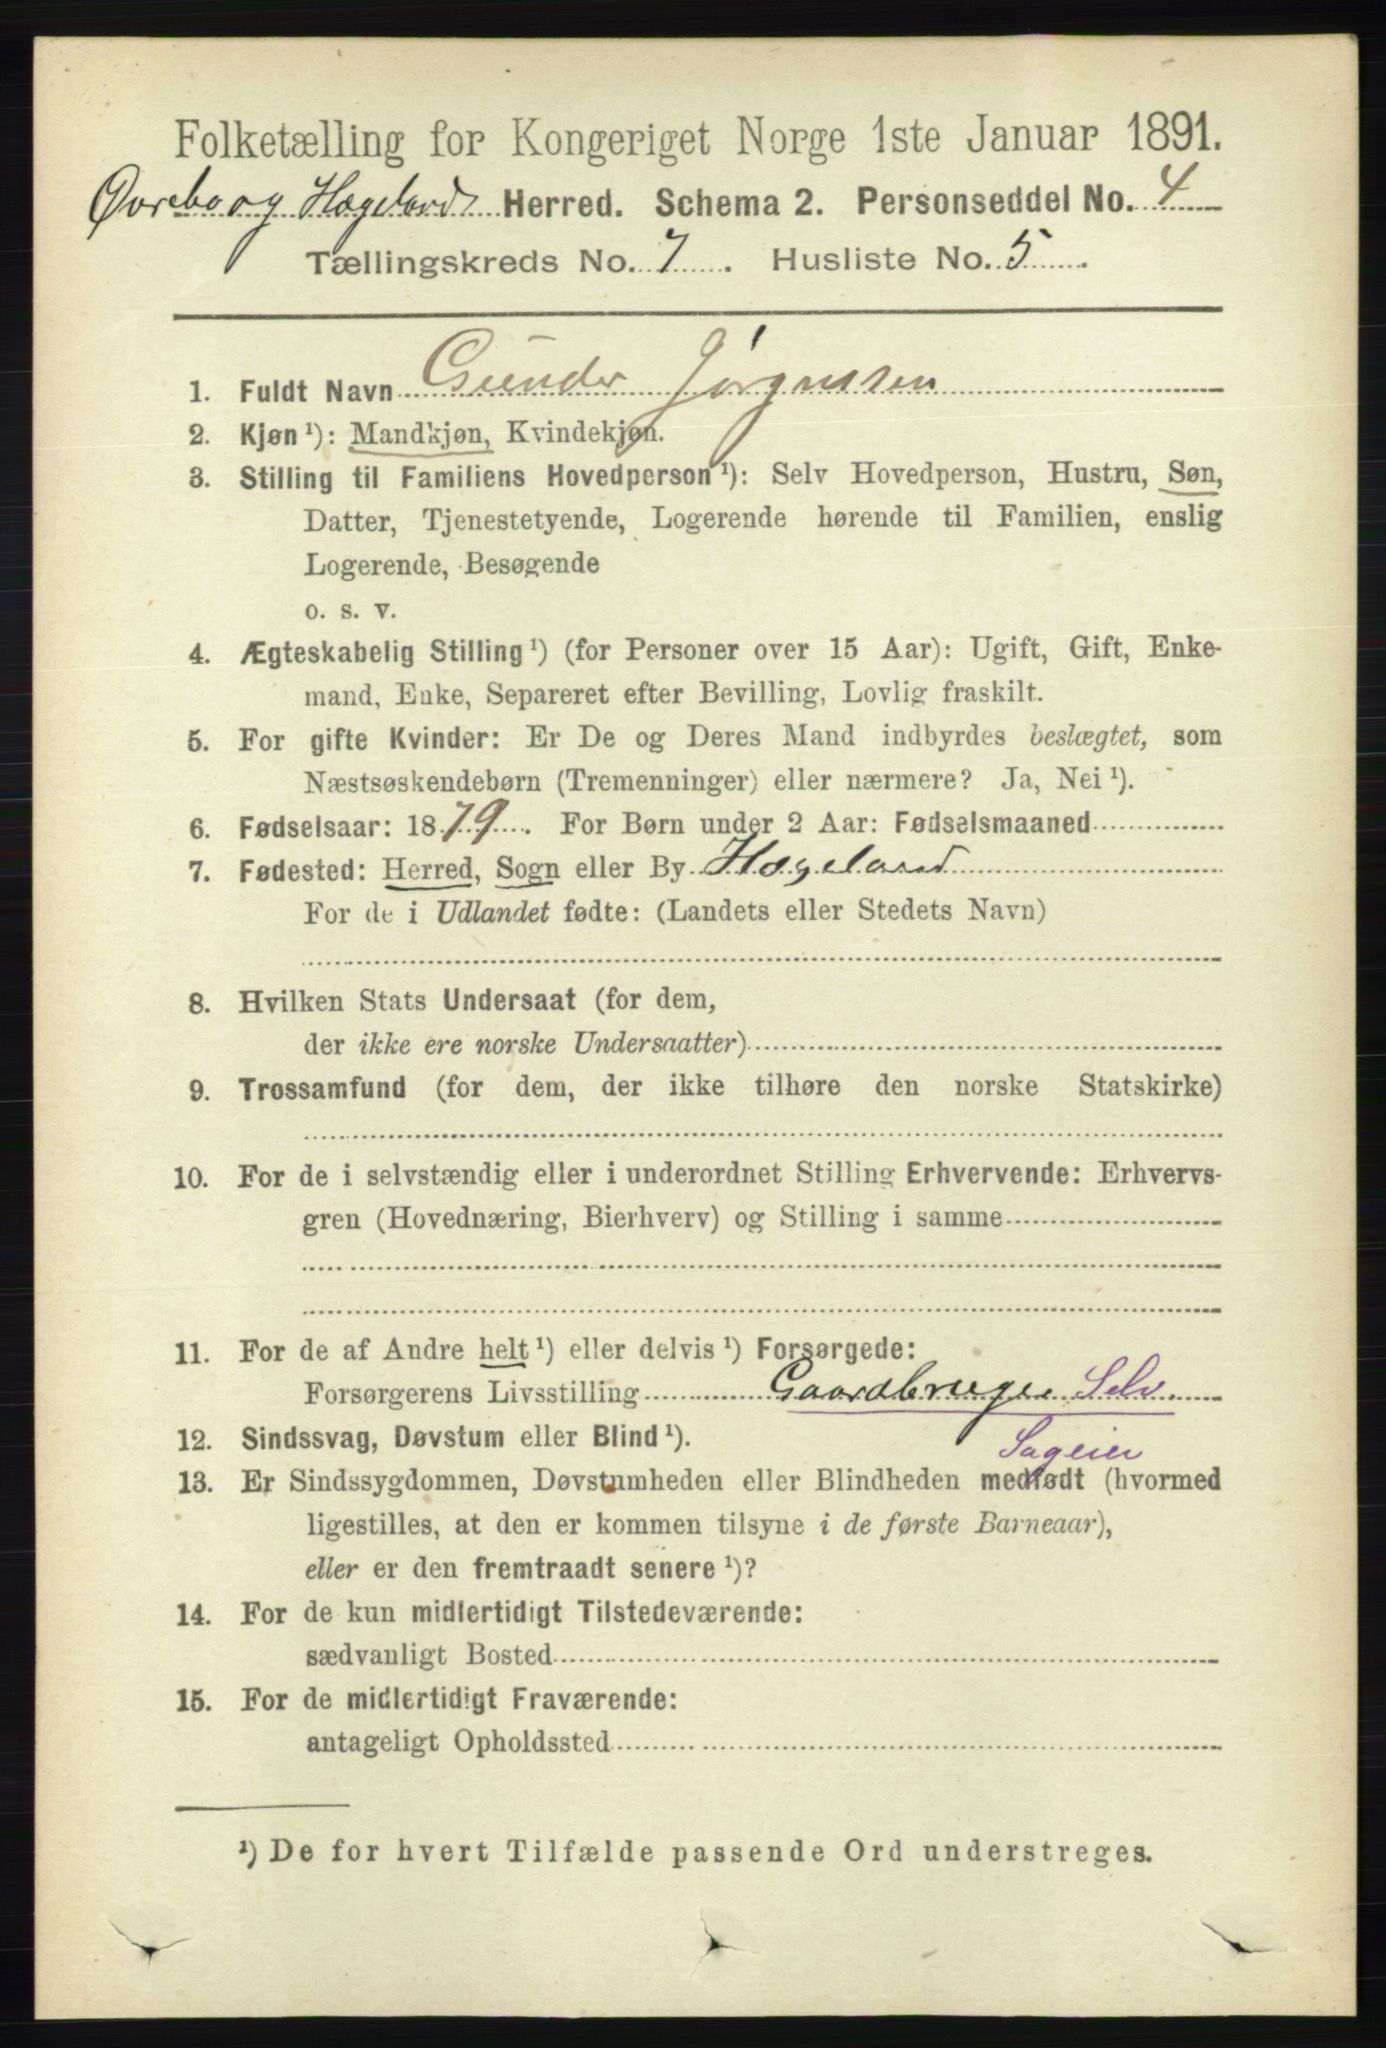 Folketælling for Kongeriget Norge 1ste Januar 1891.
Øvrebo og Hægelands Herred. Schema 2. Personseddel No. 4
Tællingskreds No. 7. Husliste No. 5.
1. Fuldt Navn Gunder Jørgensen
2. Kjøn ¹): Mandkjøn, Kvindekjøn.
3. Stilling til Familiens Hovedperson ¹): Selv Hovedperson, Hustru, Søn,
Datter, Tjenestetyende, Logerende hørende til Familien, enslig
Logerende, Besøgende
o. s. v.
4. Ægteskabelig Stilling ¹) (for Personer over 15 Aar): Ugift, Gift, Enke-
mand, Enke, Separeret efter Bevilling, Lovlig fraskilt.
5. For gifte Kvinder: Er De og Deres Mand indbyrdes beslægtet, som
Næstsøskendebørn (Tremenninger) eller nærmere? Ja, Nei ¹).
6. Fødselsaar: 1879. For Børn under 2 Aar: Fødselsmaaned
7. Fødested: Herred, Sogn eller By Hægeland
For de i Udlandet fødte: (Landets eller Stedets Navn)
8. Hvilken Stats Undersaat (for dem,
der ikke ere norske Undersaatter)
9. Trossamfund (for dem, der ikke tilhøre den norske Statskirke)
10. For de i selvstændig eller i underordnet Stilling Erhvervende: Erhvervs-
gren (Hovednæring, Bierhverv) og Stilling i samme
11. For de af Andre helt ¹) eller delvis ¹) Forsørgede:
Forsørgerens Livsstilling Gaardbruger Selv.
12. Sindssvag, Døvstum eller Blind ¹).
Sageier
13. Er Sindssygdommen, Døvstumheden eller Blindheden medfødt (hvormed
ligestilles, at den er kommen tilsyne i de første Barneaar),
eller er den fremtraadt senere ¹)?
14. For de kun midlertidigt Tilstedeværende:
sædvanligt Bosted
15. For de midlertidigt Fraværende:
antageligt Opholdssted
¹) De for hvert Tilfælde passende Ord understreges.